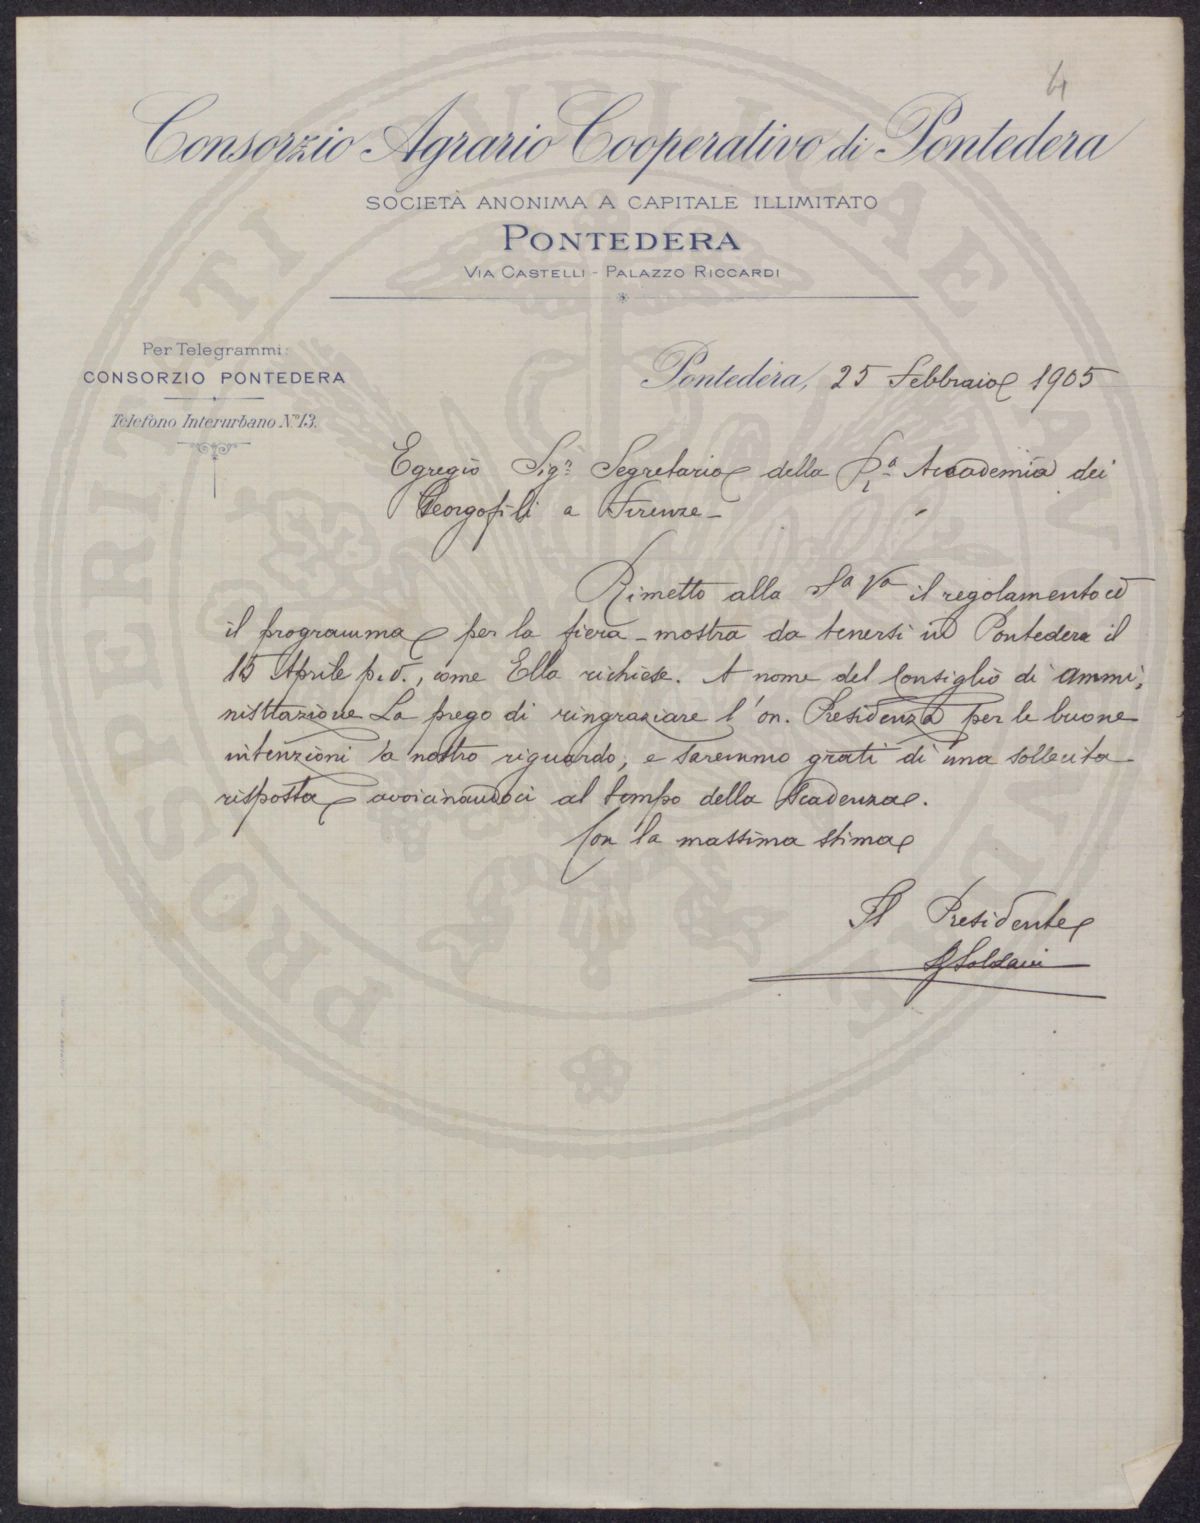 4
Consorzio Agrario Cooperativo di Pontedera
SOCIETÀ ANONIMA A CAPITALE ILLIMITATO
PONTEDERA
VIA CASTELLI - PALAZZO RICCARDI
Per Telegrammi:
CONSORZIO PONTEDERA
Telefono Interurbano N.º 13.
Pontedera, 25 Febbraio 1905
Egregio Sigr. Segretario della Ra Accademia dei
Georgofili a Firenze -
Rimetto alla Sa Va il regolamento ed
il programma per la fiera - mostra da tenersi in Pontedera il
15 Aprile p.v., come Ella richiese. A nome del Consiglio di ammi,
nistrazione La prego di ringraziare l'on. Presidenza per le buone
intenzioni a nostro riguardo, e saremmo grati di una sollecita
risposta avvicinandoci al tempo della scadenza.
Con la massima stima
Il Presidente
Soldaini
PROSPERITATI PUBLICAE AUGENDAE